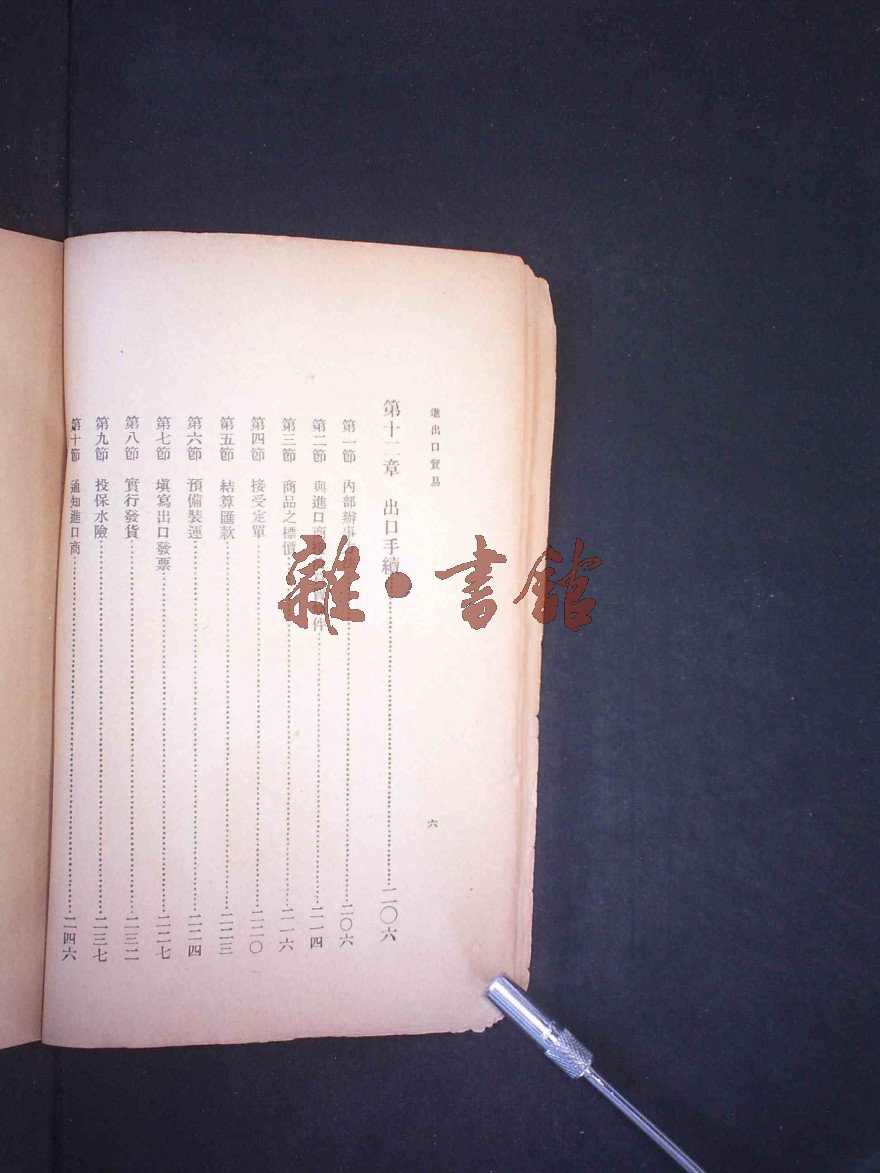 進出口貿易
六
第十二章 出口手續……二〇六
第一節 內部辦事……二〇六
第二節 與進口商 件……二一四
第三節 商品之標價……二一六
第四節 接受定單……二二〇
第五節 結算匯款……二二三
第六節 預備裝運……二二四
第七節 填寫出口發票……二二七
第八節 實行發貨……二三二
第九節 投保水險……二三七
第十節 通知進口商……二四六
雜·書館